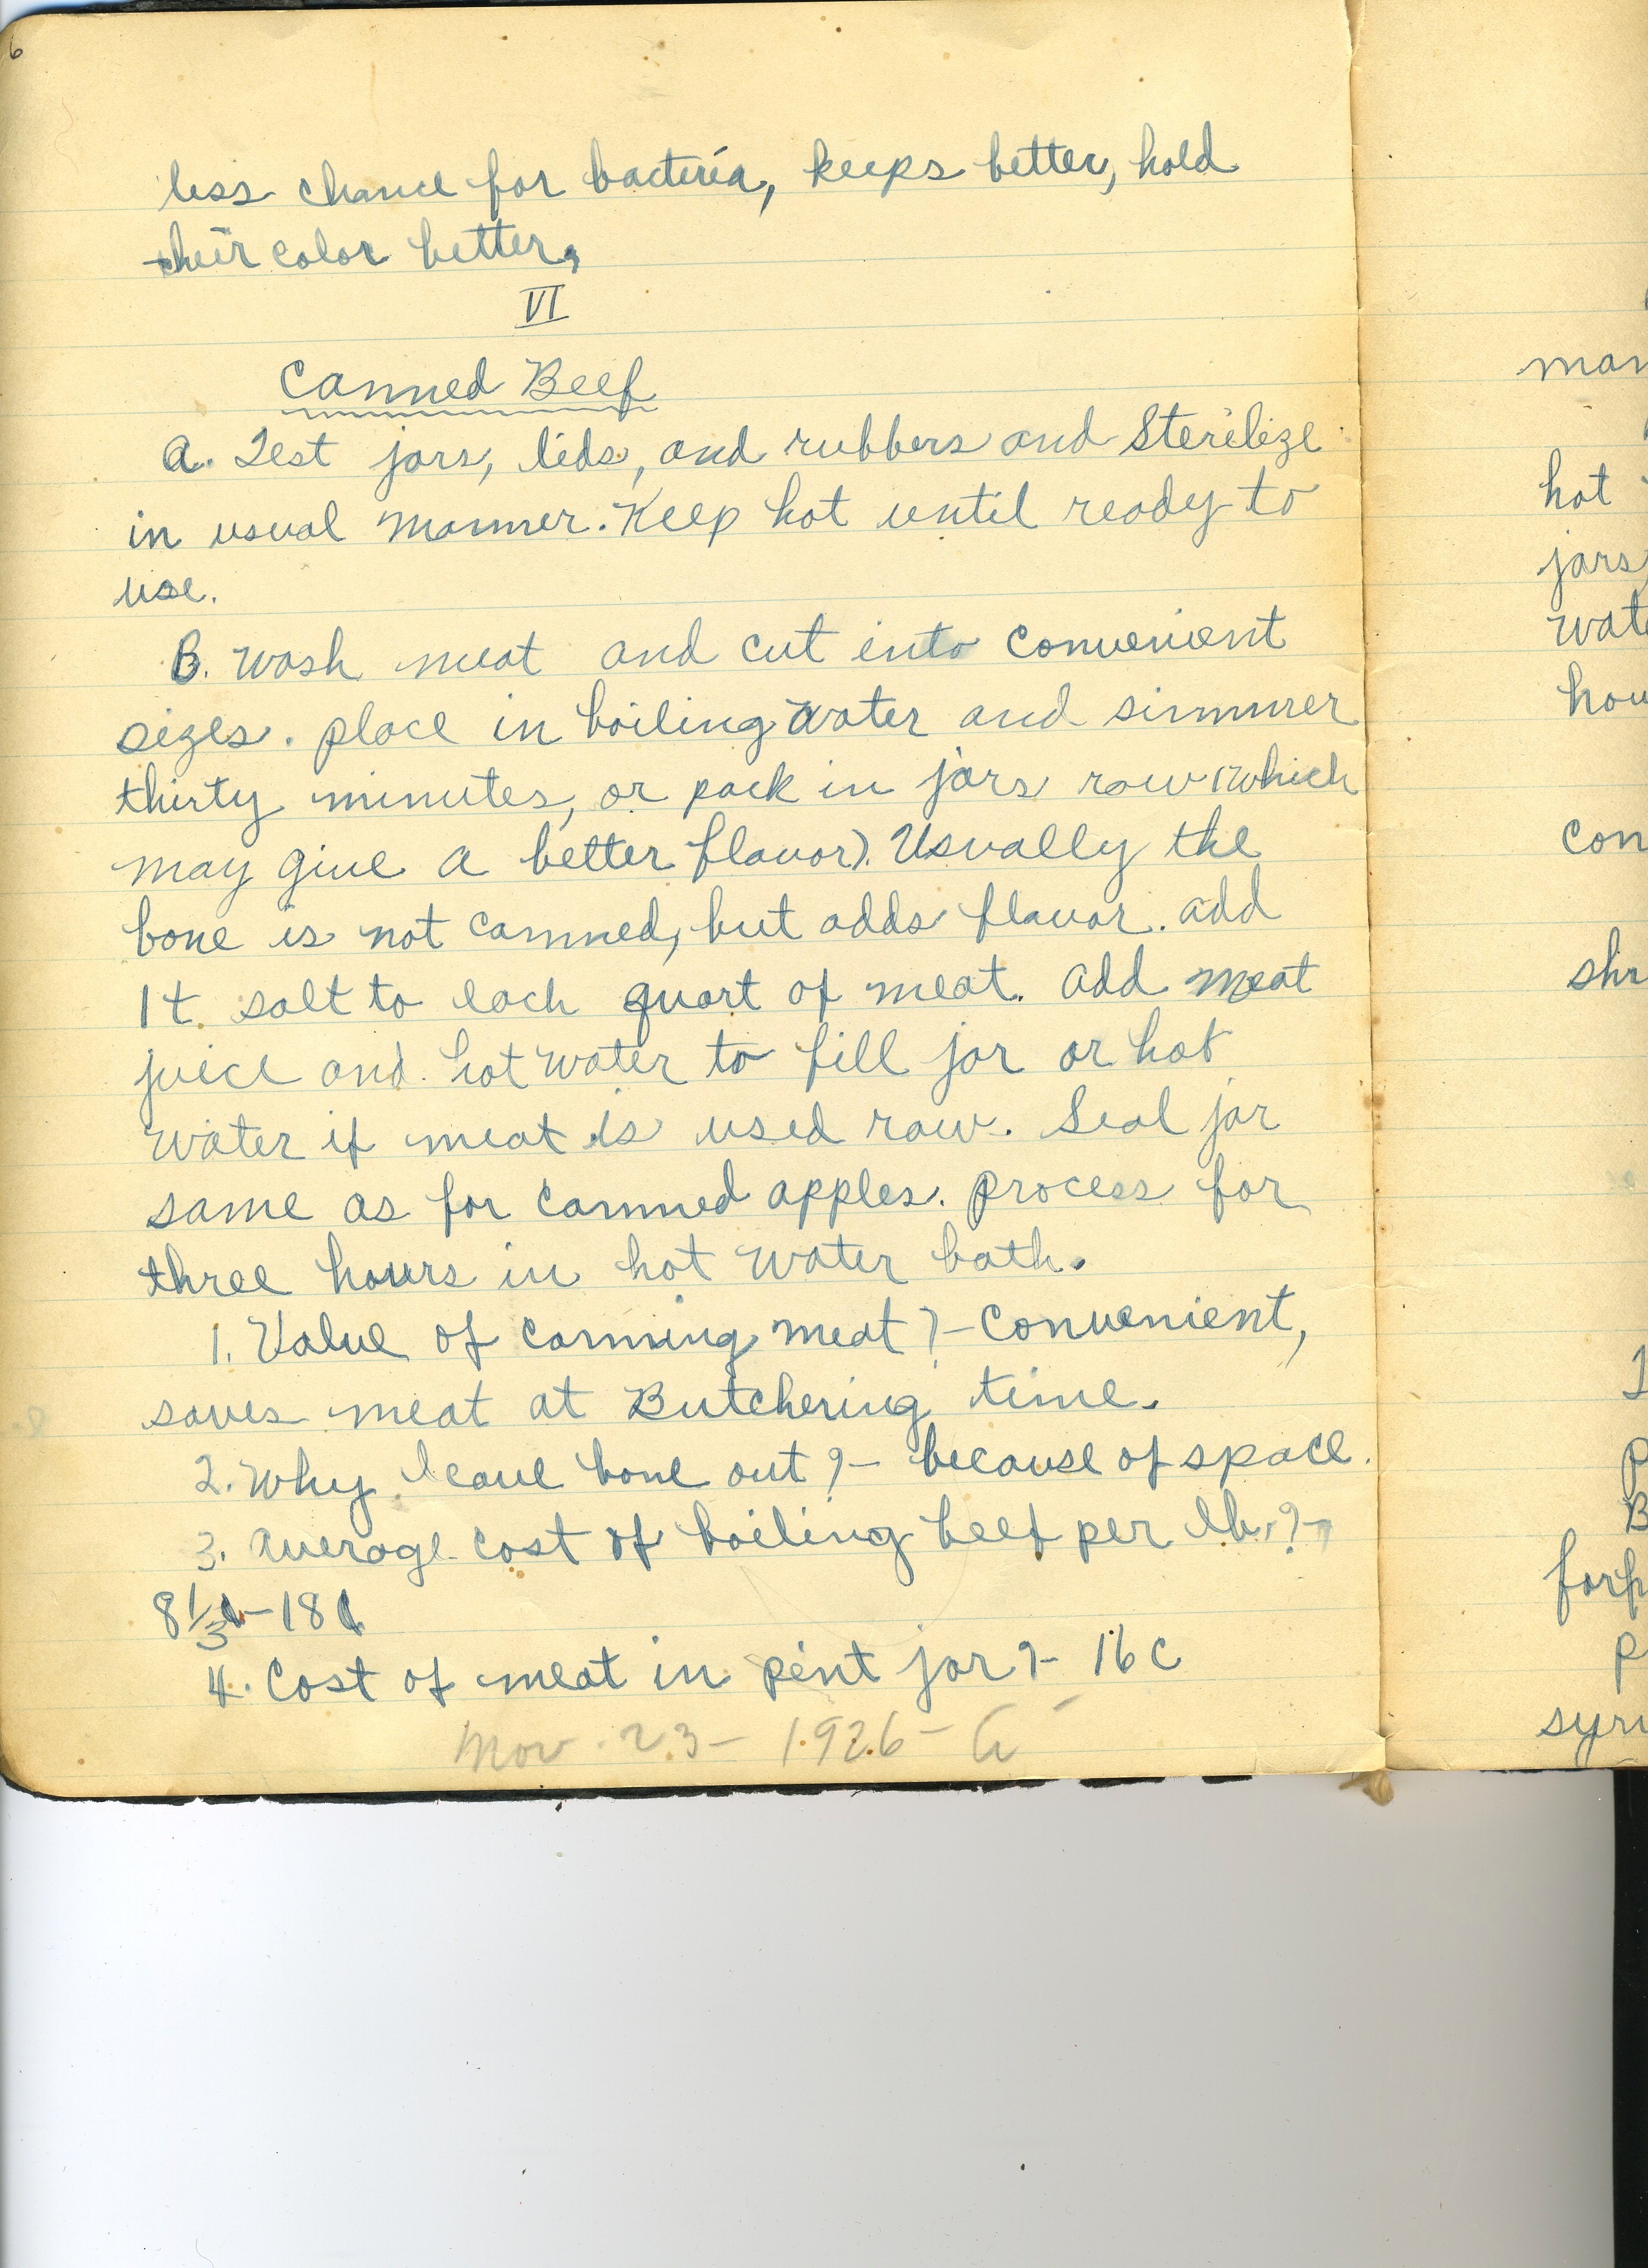 6
less chance for bacteria, keeps better, hold
their color better,
VI
Canned Beef
A. Test jars, lids, and rubbers and Sterilize
in usual manner. Keep hot until ready to
use.
B. Wash meat and cut into convenient
sizes. place in boiling water and simmer
thirty minutes, or pack in jars raw (which
may give a better flavor). Usually the
bone is not canned, but adds flavor. add
1 t. salt to each quart of meat. add meat
juice and hot water to fill jar or hot
water if meat is used raw. Seal jar
same as for canned apples. process for
three hours in hot water bath.
1. Value of canning meat?- Convenient,
saves meat at Butchering time.
2. Why leave bone out?- because of space.
3. Average cost of boiling beef per lb.?-
8 1/3 - 18
4. Cost of meat in pint jar?- 16 c
Nov. 23- 1926-
man
hot
jars
wate
hou
con
shr
T
p
B
forh
p
syru